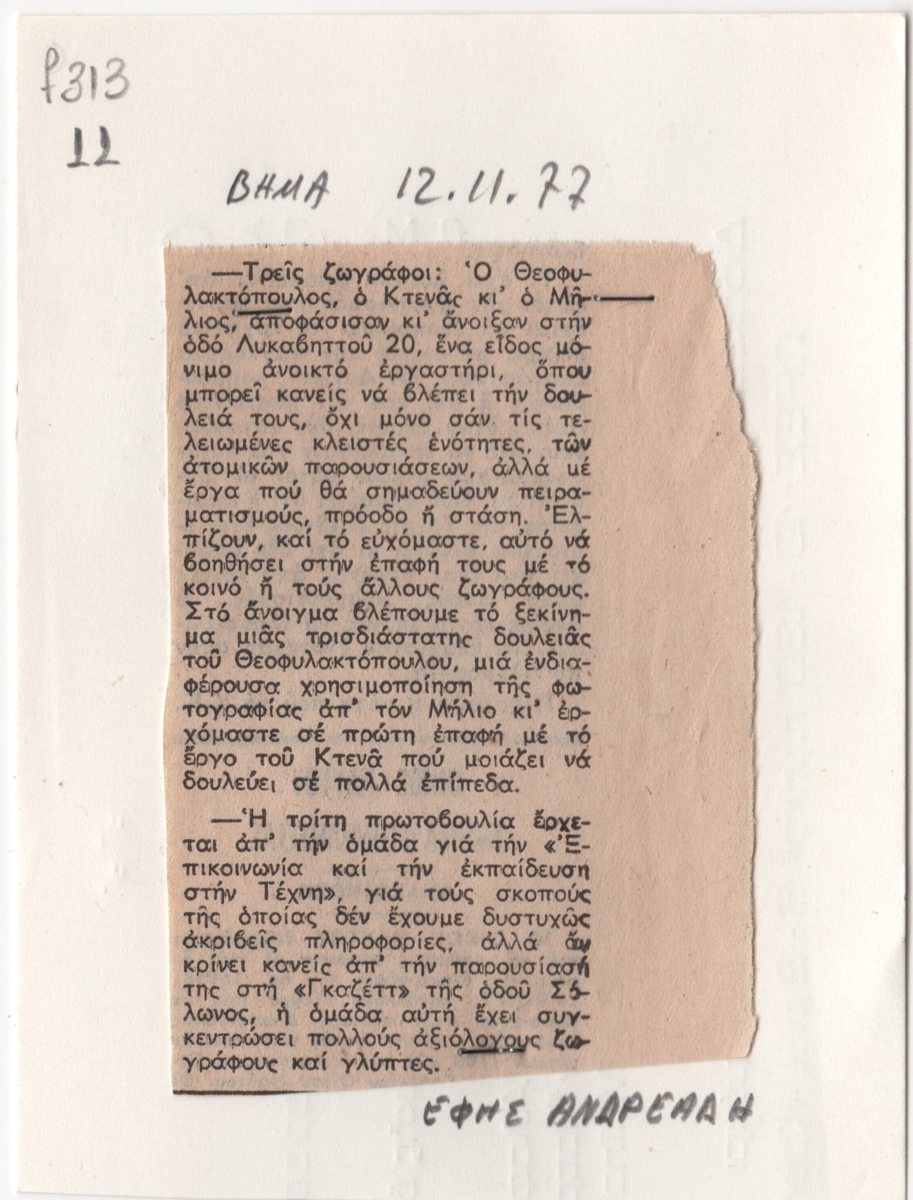 f313
11
ΒΗΜΑ 12.11.77
—Τρεῖς ζωγράφοι: Ὁ Θεοφυ-
λακτόπουλος, ὁ Κτενᾶς κι' ὁ Μῆ-
λιος, ἀποφάσισαν κι' ἄνοιξαν στήν
ὁδό Λυκαβηττοῦ 20, ἕνα εἶδος μό-
νιμο ἀνοικτό ἐργαστήρι, ὅπου
μπορεῖ κανείς νά βλέπει τήν δου-
λειά τους, ὄχι μόνο σάν τίς τε-
λειωμένες κλειστές ἑνότητες, τῶν
ἀτομικῶν παρουσιάσεων, ἀλλά μέ
ἔργα πού θά σημαδεύουν πειρα-
ματισμούς, πρόοδο ἤ στάση. Ἐλ-
πίζουν, καί τό εὐχόμαστε, αὐτό νά
βοηθήσει στήν ἐπαφή τους μέ τό
κοινό ἤ τούς ἄλλους ζωγράφους.
Στό ἄνοιγμα βλέπουμε τό ξεκίνη-
μα μιᾶς τρισδιάστατης δουλειᾶς
τοῦ Θεοφυλακτόπουλου, μιά ἐνδια-
φέρουσα χρησιμοποίηση τῆς φω-
τογραφίας ἀπ' τόν Μήλιο κι' ἐρ-
χόμαστε σέ πρώτη ἐπαφή μέ τό
ἔργο τοῦ Κτενᾶ πού μοιάζει νά
δουλεύει σέ πολλά ἐπίπεδα.
—Ἡ τρίτη πρωτοβουλία ἔρχε-
ται ἀπ' τήν ὁμάδα γιά τήν «Ἐ-
πικοινωνία καί τήν ἐκπαίδευση
στήν Τέχνη», γιά τούς σκοπούς
τῆς ὁποίας δέν ἔχουμε δυστυχῶς
ἀκριβεῖς πληροφορίες, ἀλλά ἄν
κρίνει κανείς ἀπ' τήν παρουσίασή
της στή «Γκαζέττ» τῆς ὁδοῦ Σό-
λωνος, ἡ ὁμάδα αὐτή ἔχει συγ-
κεντρώσει πολλούς ἀξιόλογους ζω-
γράφους καί γλύπτες.
ΕΦΗΣ ΑΝΔΡΕΑΔΗ